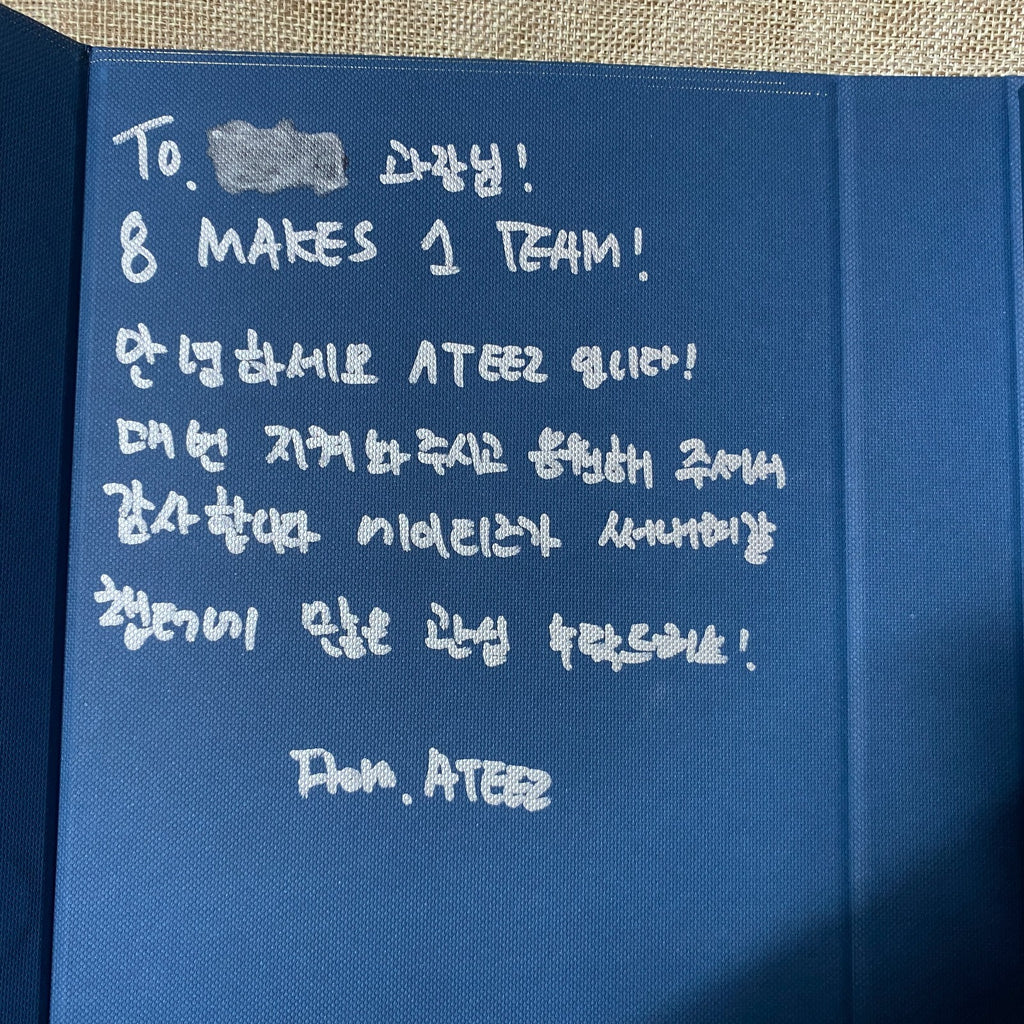 To. 과장님!
8 MAKES 1 TEAM!
안녕하세요 ATEEZ 입니다!
매번 지켜봐주시고 응원해 주셔서
감사합니다 에이티즈가 써내려갈
챕터에 많은 관심 부탁드려요!
From. ATEEZ